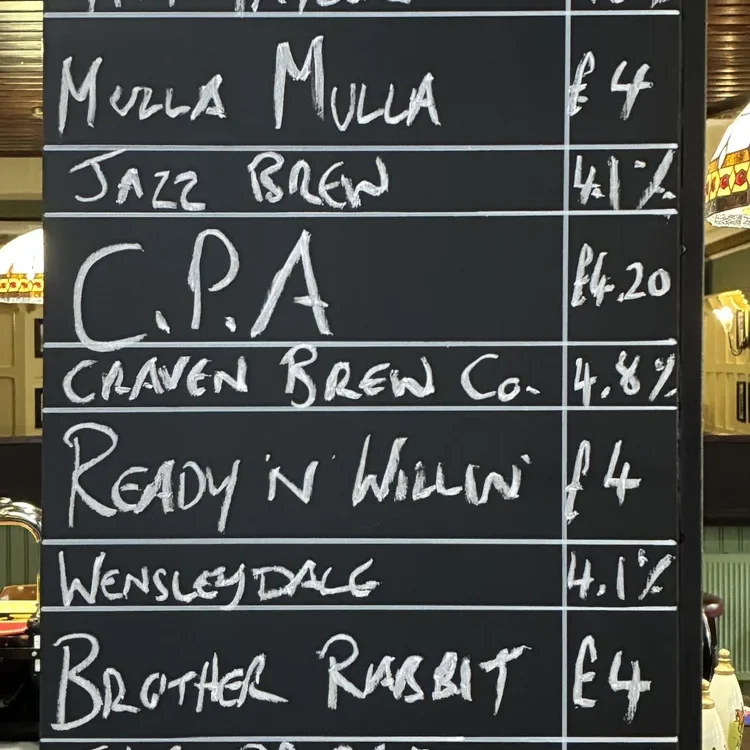 MULLA MULLA £4
JAZZ BREW 4.1%
C.P.A £4.20
CRAVEN BREW CO. 4.8%
READY 'N' WILLIN' £4
WENSLEYDALE 4.1%
BROTHER RABBIT £4